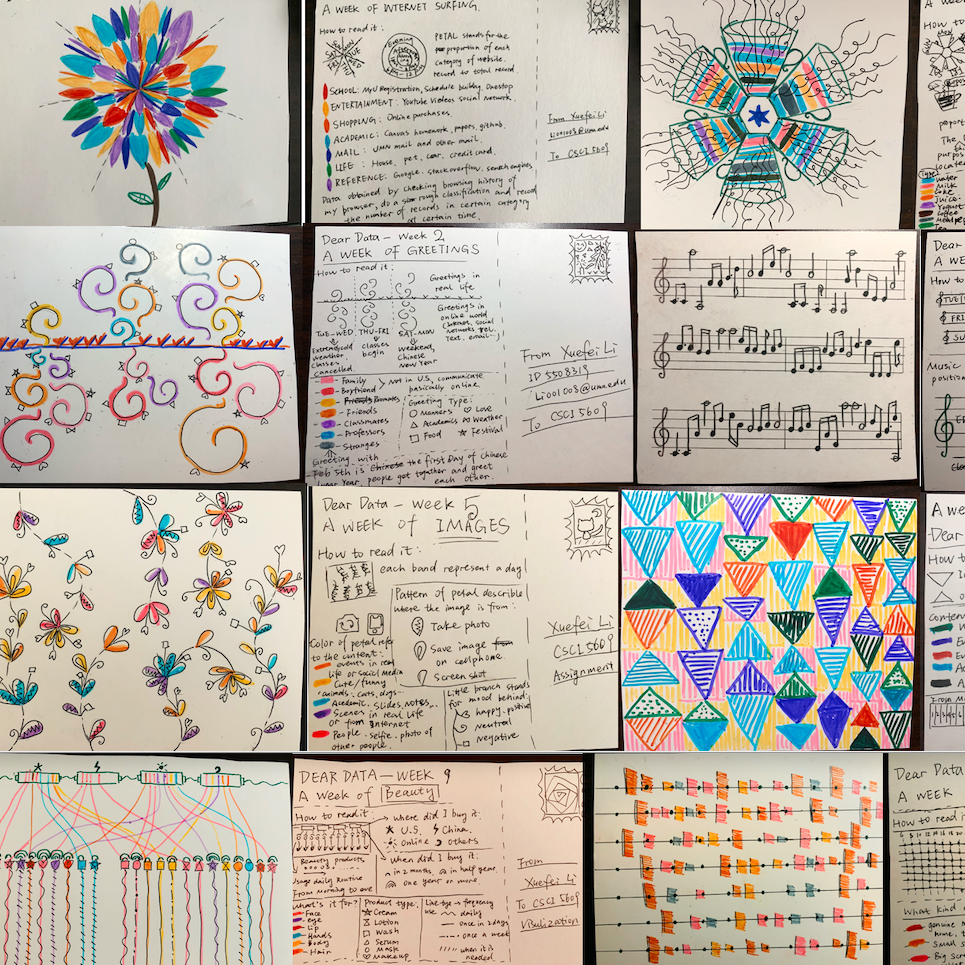 A WEEK OF INTERNET SURFING.
How to read it:
PETAL stands for the
proportion of each
category of website.
record to total record
Evening
SCHOOL: MyU Registration, Schedule building, Onestop
ENTERTAINMENT: Youtube Videos social Network.
SHOPPING: Online purchases.
ACADEMIC: Canvas homework, papers, github.
MAIL: UMN mail and other mail.
LIFE: House, pet, car, credit card.
REFERENCE: Google, stackoverflow, search engines,
Data obtained by checking browsing history of
my browser, do a rough classification and record
the number of records in certain category
at certain time.
From Xuefei Li
li001008@umn.edu
To CSCI 5609
A WEEK
How to
Type
Water
Milk
Coke
Juice
Yogurt
Coffee
Dear Data - Week 2
A WEEK OF GREETINGS
How to read it:
Greetings in
real life
Greetings in
online world
social
networks, tel.
Text, email...
TUE-WED, THU-FRI SAT-MON
Extreme cold
weather,
classes
cancelled.
classes
begin
Weekend,
Chinese
New Year
Family
Boyfriend
Not in U.S, communicate
basically online.
Friends
Classmates
Professors
Stranges
Greeting Type:
Manners Love
Academics Weather
Food Festival
Greeting with
Feb 5th is the first Day of chinese
Year, people got together and greet
each other.
From Xuefei Li
ID 5508319
li001008@umn.edu
To CSCI 5609
Dear
A WE
How to
TUE
FRI
SU
Music
position
Dear Data - Week 5
A WEEK OF IMAGES
How to read it:
each band represent a day
Pattern of petal describle
where the image is from:
Take photo
Save image
on cellphone
Screen shot
Color of petal refer
to the content:
events in real
life or social media
Cute/funny
animals: cats, dogs..
Academic: slides, notes..
Scenes in real life
or from internet
People - selfie, photo of
other people.
Little branch stands
for mood behind:
happy, positive
neutral
negative
Xuefei Li
CSCI 5609
Assignment
A wee
Dear
How to
Conten
From M
DEAR DATA - WEEK 9
A week of Beauty
How to read it:
where did I buy it:
U.S. China.
Online Others
when did I buy it:
in 2 months in half year,
one year or more.
Beauty products
Usage daily Routine
From morning to eve
What's it for?
Face
eye
Lip
Hands
Body
Hair
Product type:
Cream
Lotion
Wash
Serum
Mask
Makeup
Line type → frequency
use daily
once in 3 days
once a week
when it is
needed.
From
Xuefei Li
To CSCI 5609
Visulization
Dear Data
A WEEK
How to read it
What kind
genuine
home, t
Small s
Big Scr